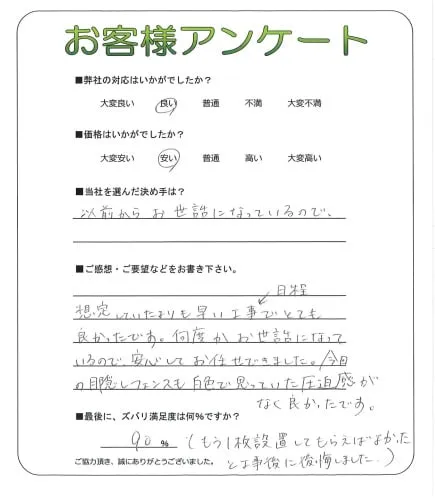 お客様アンケート
■弊社の対応はいかがでしたか？
大変良い 良い 普通 不満 大変不満
■価格はいかがでしたか？
大変安い 安い 普通 高い 大変高い
■当社を選んだ決め手は？
以前からお世話になっているので、
■ご感想・ご要望などをお書き下さい。
日程
想定していたよりも早い工事でとても
良かったです。何度かお世話になって
いるので、安心してお任せできました。今回
の目隠しフェンスも白色で思っていた圧迫感が
なく良かったです。
■最後に、ズバリ満足度は何％ですか？
90 ％ （もう1枚設置してもらえばよかった
と工事後に後悔しました。）
ご協力頂き、誠にありがとうございました。